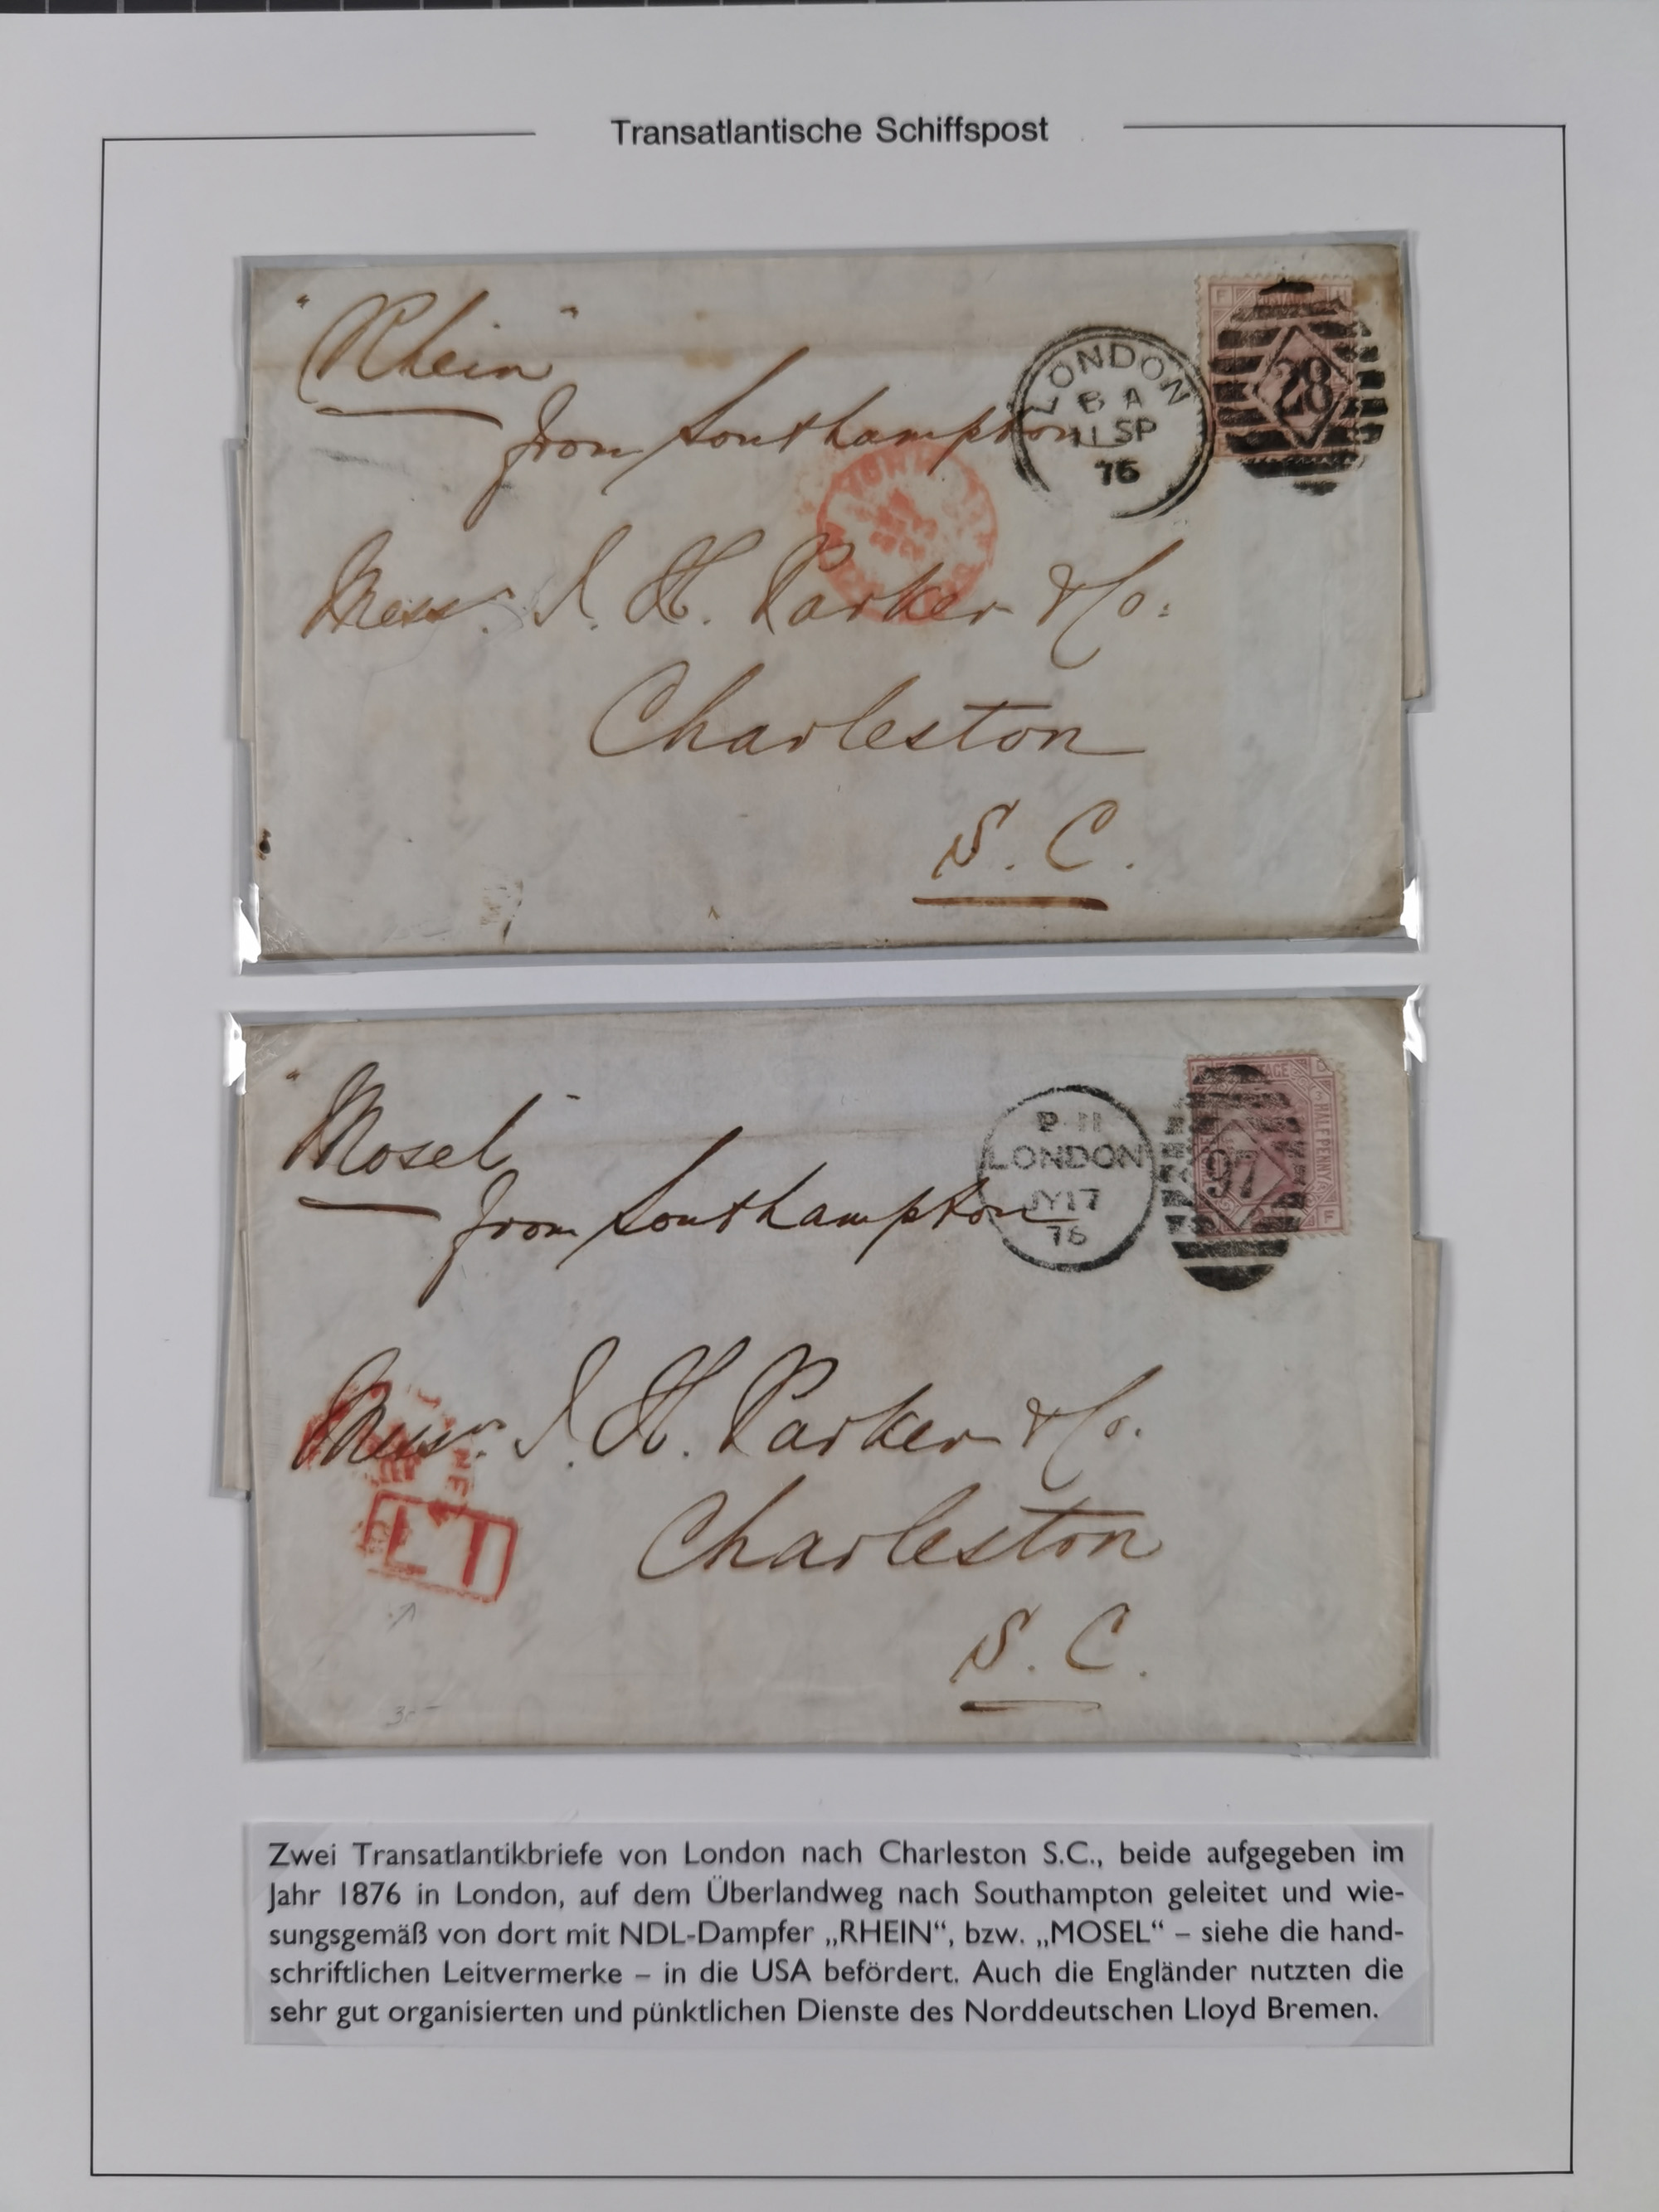 Transatlantische Schiffspost
"Rhein"
from Southampton
LONDON
B A
11 SP
76
28
F H
YORK
Messrs. J. H. Parker & Co:
Charleston
S. C.
"Mosel"
from Southampton
LONDON
JY 17
76
97
HALFPENNY
Messrs. J. H. Parker & Co.
LT
Charleston
S. C.
30-
Zwei Transatlantikbriefe von London nach Charleston S.C., beide aufgegeben im
Jahr 1876 in London, auf dem Überlandweg nach Southampton geleitet und wie-
sungsgemäß von dort mit NDL-Dampfer „RHEIN“, bzw. „MOSEL“ – siehe die hand-
schriftlichen Leitvermerke – in die USA befördert. Auch die Engländer nutzten die
sehr gut organisierten und pünktlichen Dienste des Norddeutschen Lloyd Bremen.